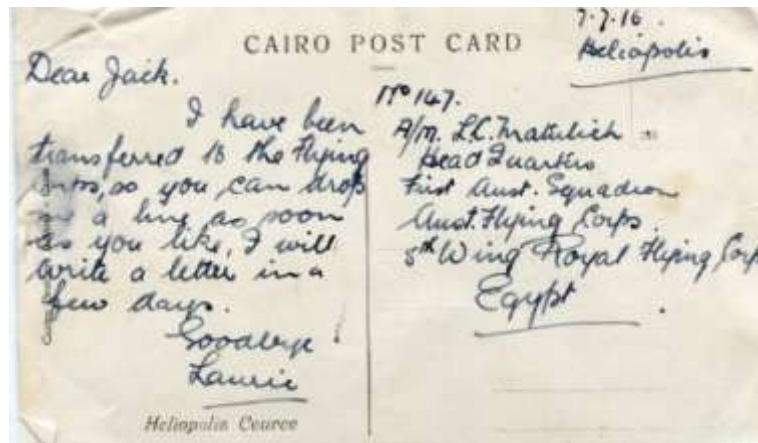 CAIRO POST CARD
7-7-16.
Heliopolis
Dear Jack.
I have been
transferred to the Flying
Corps, so you can drop
me a line as soon
as you like, I will
write a letter in a
few days.
Goodbye
Laurie
No 147.
A/m. L.C. Matulich
Head Quarters
First Aust. Squadron
Aust. Flying Corps.
5th Wing Royal Flying Corps
Egypt.
Heliopolis Cource